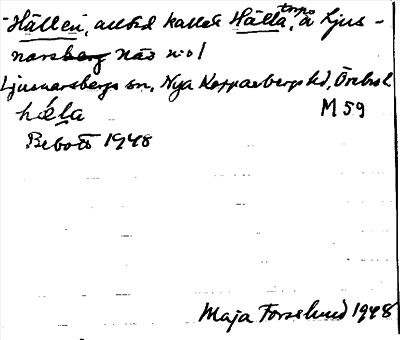 Hällen, alltid kallat Hälla, torp å Ljus-
narsberg När n:o 1
Ljusnarsbergs sn, Nya Kopparbergs hd, Örebro l.
hǽla M 59
Bebott 1948
Maja Forslund 1948